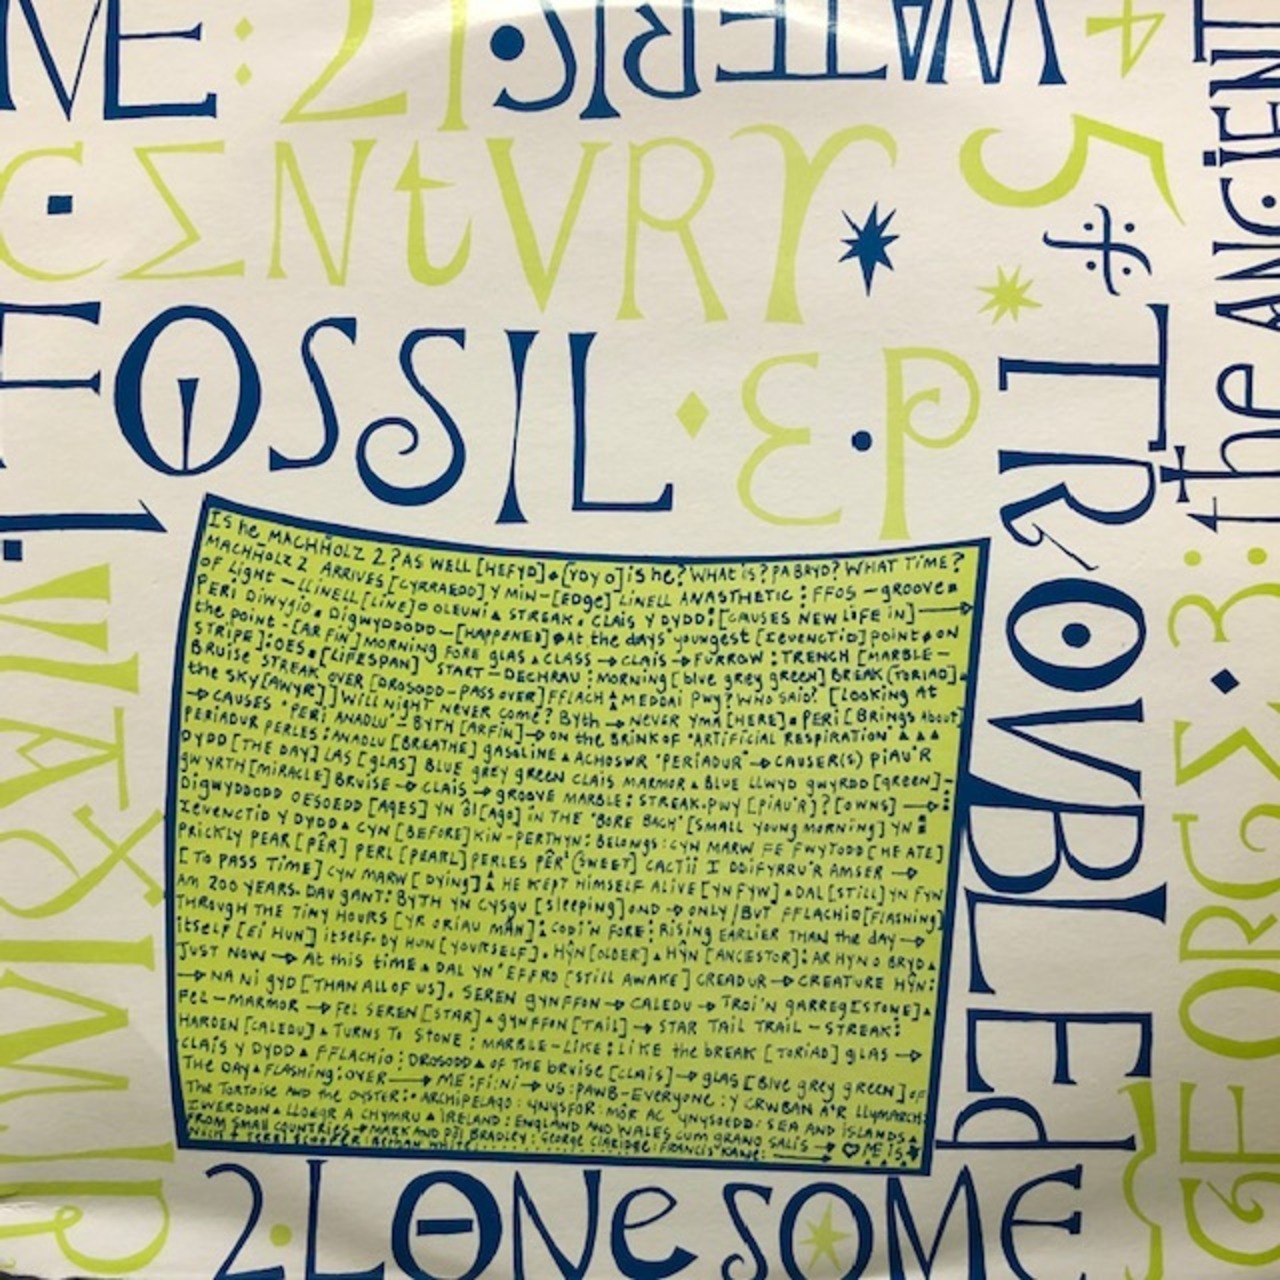 NE: 21
WATERS
4
5
CΣNtVRY
FOSSIL · EP
TROVBLEd
3: the ANCiENT
GEORGΣ
2·LONeSOME
Is he MACHHOLZ 2? AS WELL [HEFYD] [YDY O] is he? WHAT is? PA BRYD? WHAT TiME?
MACHHOLZ 2 ARRIVES [CYRRAEDD] Y MIN-[EDge] LINELL ANASTHETIC : FFOS - gROOVE
OF LIGHT - LLINELL [LINE] O OLEUNI STREAK. CLAiS Y DYDD: [CAUSES NEW LiFE iN]
PERI DIWYGIO DIGWYDDODD-[HAPPENED] At the dAYS youngest [IEVENCTID] POINT ON
the point-[AR FIN] MORNING FORE GLAS CLASS → CLAIS → FURROW : TRENCH [MARBLE-
STRIPE]: OES [LIFESPAN] START - DECHRAU : MORNING [blue gREy gREEN] BREAK (TORIAD)
BRUISE STREAK OVER [DROSODD-PASS OVER] FFLACH MEDDAI PWY? WHO SAID? [LOOKING At
the SKY [AWYR]] WILL NIGHT NEVER COME? BYth → NEVER YMA [HERE] PERI [BRINGS AboUT]
→ CAUSES "PERI ANADLU" - BYTH [ARFIN] → ON the BRINK OF "ARTIFICIAL RESPIRATION"
PERIADUR PERLES: ANADLU [BREATHE] GASOLINE ACHOSWR "PERIADUR" → CAUSER(S) PIAU'R
DYDD [THE DAY] LAS [GLAS] BLUE GREY GREEN CLAIS MARMOR BLUE LLWYD GWYRDD [gREEN]-
GWYRTH [MIRACLE] BRUISE → CLAIS → GROOVE MARBLE: STREAK. PWY [PIAU'R]? [OWNS] →
DIGWYDDODD OESOEDD [AGES] YN ÔL [AGO] IN THE "BORE BACH" [SMALL YOUNG MORNING] YN
IEVENCTID Y DYDD CYN [BEFORE] KIN-PERTHYN: BELONGS: CYN MARW FE FWYTODD [HE ATE]
PRICKLY PEAR [PÊR] PERL [PEARL] PERLES PÊR [SWEET] CACTii I DDIFYRRU'R AMSER →
[TO PASS TIME] CYN MARW [DYING] HE KEPT HIMSELF ALIVE [YN FYW] DAL [STILL] YN FYW
AM 200 YEARS. DAV gANT: BYTH YN CYSGU [SLEEPING] OND → ONLY/BUT FFLACHIO [FLASHING]
THROUGH THE TINY HOURS [YR ORIAU MÂN] CODI'N FORE: RISING EARLIER THAN the dAY →
ITSELF [EI HUN] ITSELF. DY HUN [YOURSELF]. HŶN [OLDER] HŶN [ANCESTOR]: AR HYN O BRYD
JUST NOW → At this time DAL YN EFFRO [STILL AWAKE] CREADUR → CREATURE HŶN:
→ NA NI GYD [THAN ALL OF US]. SEREN GYNFFON → CALEDU → TROI'N GARREG [STONE]
FEL - MARMOR → FEL SEREN [STAR] GYNFFON [TAIL] → STAR TAIL TRAIL - STREAK:
HARDEN [CALEDU] TURNS TO STONE : MARBLE-LIKE: LIKE the bREAK [TORIAD] GLAS →
CLAIS Y DYDD FFLACHIO : DROSODD OF THE bRUISE [CLAIS] → GLAS [BlUE gREy gREEN] OF
THE DAY FLASHING: OVER → ME: FI: NI → US: PAWB - EVERYONE : Y CRWBAN A'R LLYMARCH:
THE TORTOISE AND the OYSTER: ARCHIPELAGO: YNYSFOR: MÔR AC YNYSOEDD: SEA AND ISLANDS
IWERDDON LLOEGR A CHYMRU IRELAND: ENGLAND AND WALES CUM GRANO SALIS →
FROM SMALL COUNTRIES → MARK AND BRADLEY: GEORGE CLARIDGE: FRANCIS KANE: ME IS
NICK + TERRI